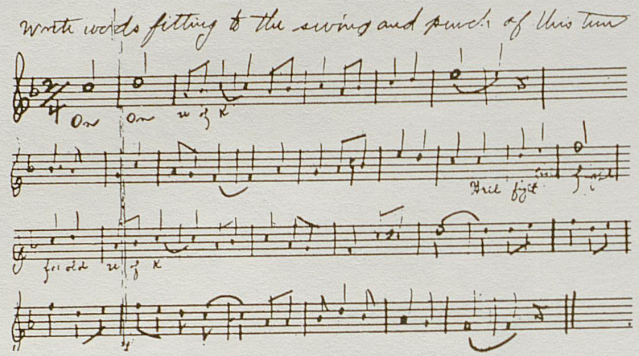 Write words fitting to the swing and punch of this tune
On On U of K
Hail fight
for old U of K